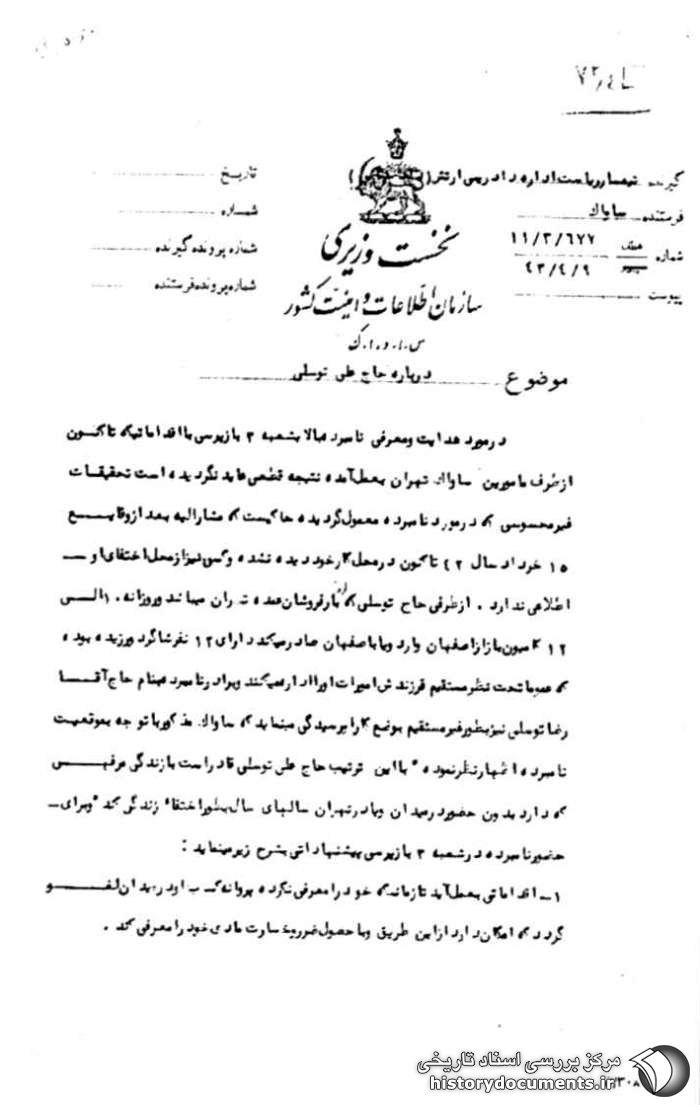 گیرنده تیمسار ریاست اداره دادرسی ارتش (
فرستنده ساواک
شماره ۱۱/۳/۶۷۷
۴۳/۴/۹
پیوست
تاریخ
شماره
شماره پرونده گیرنده
شماره پرونده فرستنده
نخست وزیری
سازمان اطلاعات و امنیت کشور
س.ا.و.ا.ک
موضوع درباره حاج علی توسلی
در مورد هدایت و معرفی نامبرده بالا بشعبه ۳ بازپرسی با اقداماتیکه تاکنون
از طرف مامورین ساواک تهران بعمل آمده نتیجه قطعی عاید نگردیده است تحقیقات
غیر محسوسی که در مورد نامبرده معمول گردیده حاکیست که مشارالیه بعد از وقایع
۱۵ خرداد سال ۴۲ تاکنون در محل کار خود دیده نشده و کسی نیز از محل اختفای او ـ
اطلاعی ندارد . از طرفی حاج توسلی که از بارفروشان عمده تهران میباشد و روزانه ۱۰ الی
۱۲ کامیون بار از اصفهان وارد ویا باصفهان صادر میکند دارای ۱۲ نفر شاگرد ورزیده بوده
که عموما تحت نظر مستقیم فرزندش امورات او را اداره میکنند و برادر نامبرده بنام حاج آقا
رضا توسلی نیز بطور غیر مستقیم بوضع کار رسیدگی مینماید که ساواک مذکور با توجه بموقعیت
نامبرده اظهار نظر نموده " با این ترتیب حاج علی توسلی قادر است با زندگی مرفهی
که دارد بدون حضور در میدان ویا در تهران سالهای سال بطور اختفا زندگی کند " و برای ـ
حضور نامبرده در شعبه ۳ بازپرسی پیشنهاداتی بشرح زیر مینماید :
۱ـ اقداماتی بعمل آید تا زمانیکه خود را معرفی نکرده پروانه کسب او در میدان لغو
گردد که امکان دارد از این طریق وبا حصول ضرر و خسارت مادی خود را معرفی کند .
مرکز بررسی اسناد تاریخی
historydocuments.ir